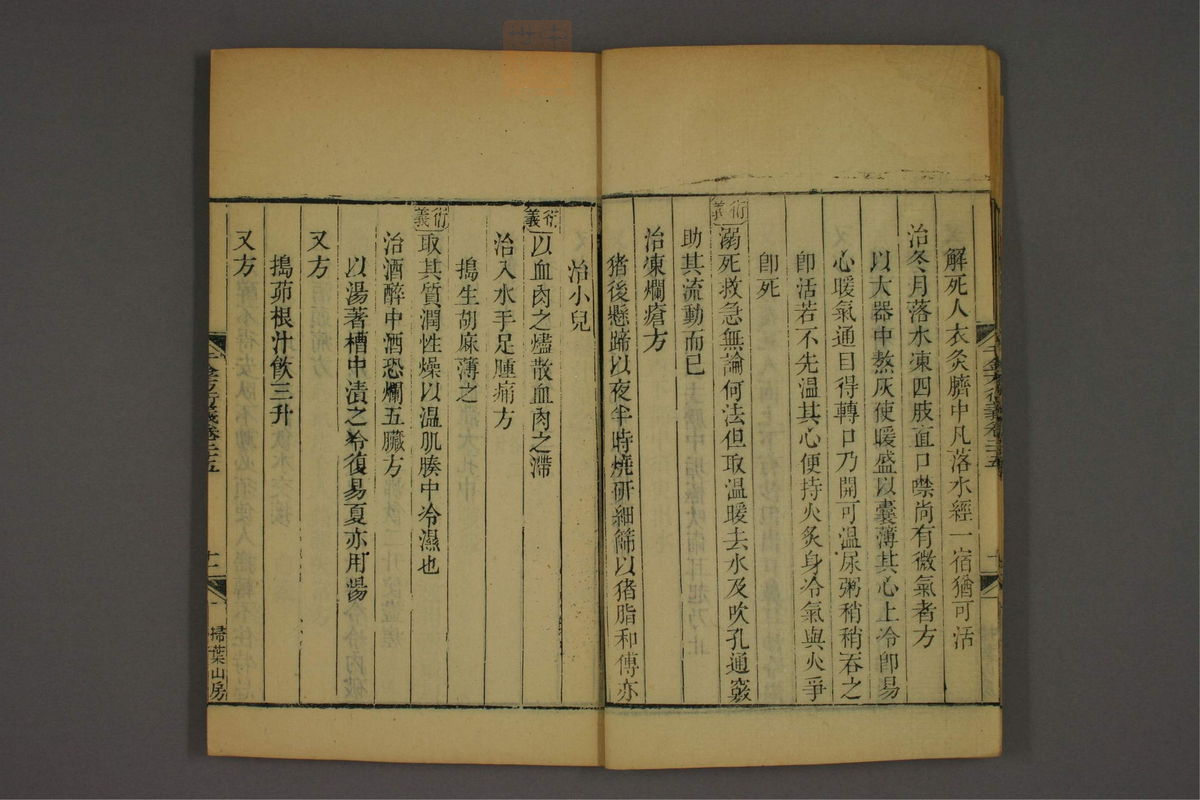 解死人衣灸臍中凡落水經一宿猶可活
治冬月落水凍四肢直口噤尚有微氣者方
以大器中熬灰使暖盛以囊薄其心上冷卽易
心暖氣通目得轉口乃開可温尿粥稍稍吞之
卽活若不先温其心便持火炙身冷氣與火爭
卽死
衍義
溺死救急無論何法但取温暖去水及吹孔通竅
助其流動而已
治凍爛瘡方
猪後懸蹄以夜半時燒研細篩以猪脂和傅亦
治小兒
衍義
以血肉之燼散血肉之滯
治入水手足腫痛方
搗生胡麻薄之
衍義
取其質潤性燥以温肌腠中冷濕也
治酒醉中酒恐爛五臟方
以湯著槽中漬之冷復易夏亦用湯
又方
搗茆根汁飲三升
又方
千金方衍義卷二十五
十一
掃葉山房